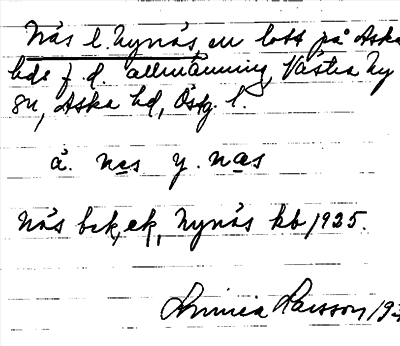 Nås l. Nynås, en lott på Aska
hds f. d. allmänning, Västra Ny
sn, Aska hd, Östg. l.
ä. nes y. nas
Nås bek, ek, Nynås kb 1925.
Larsson 193